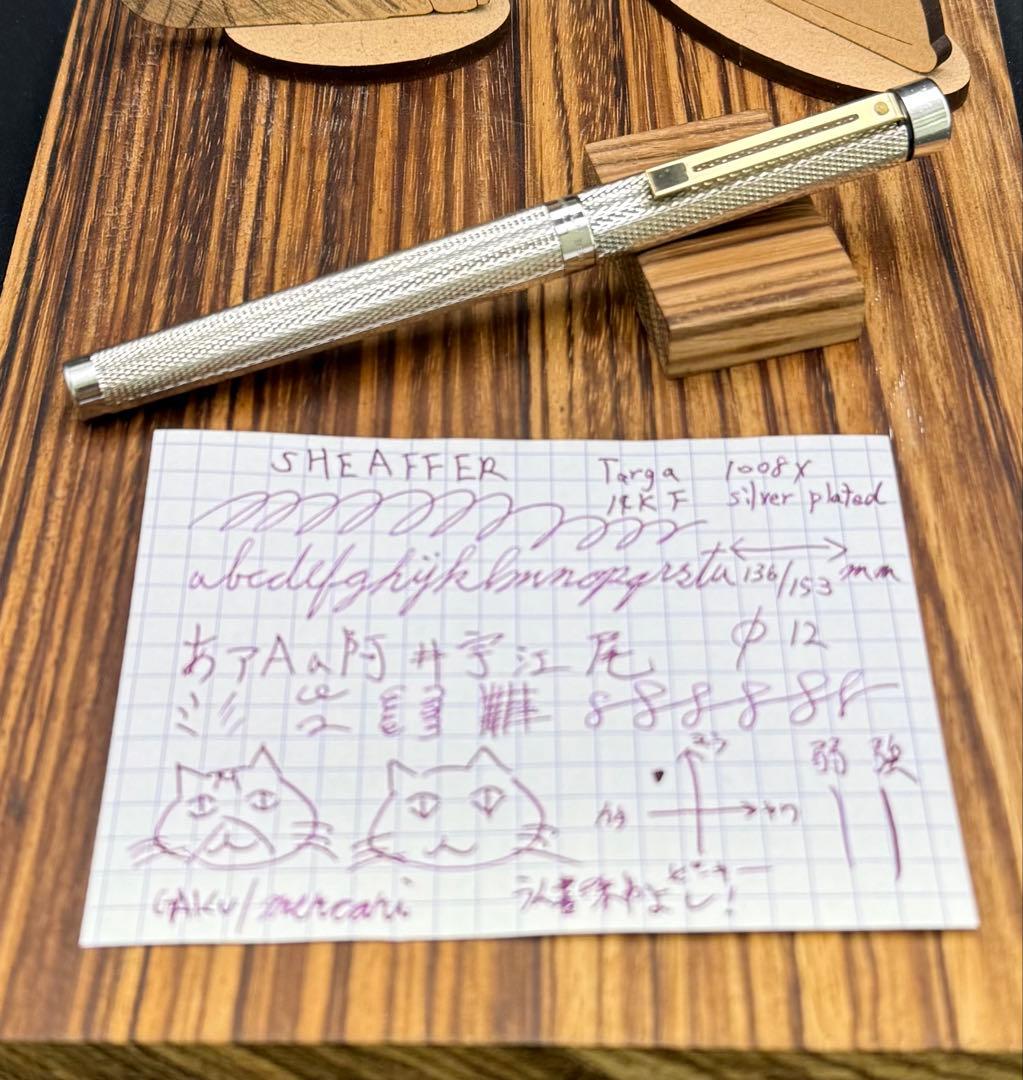 SHEAFFER Targa 1008X
14K F silver plated
abcdefghijklmnopqrstu 136/153 mm
あアAa阿井宇江尾 φ12
弱 強
GAKU/mercari 書味わよし!